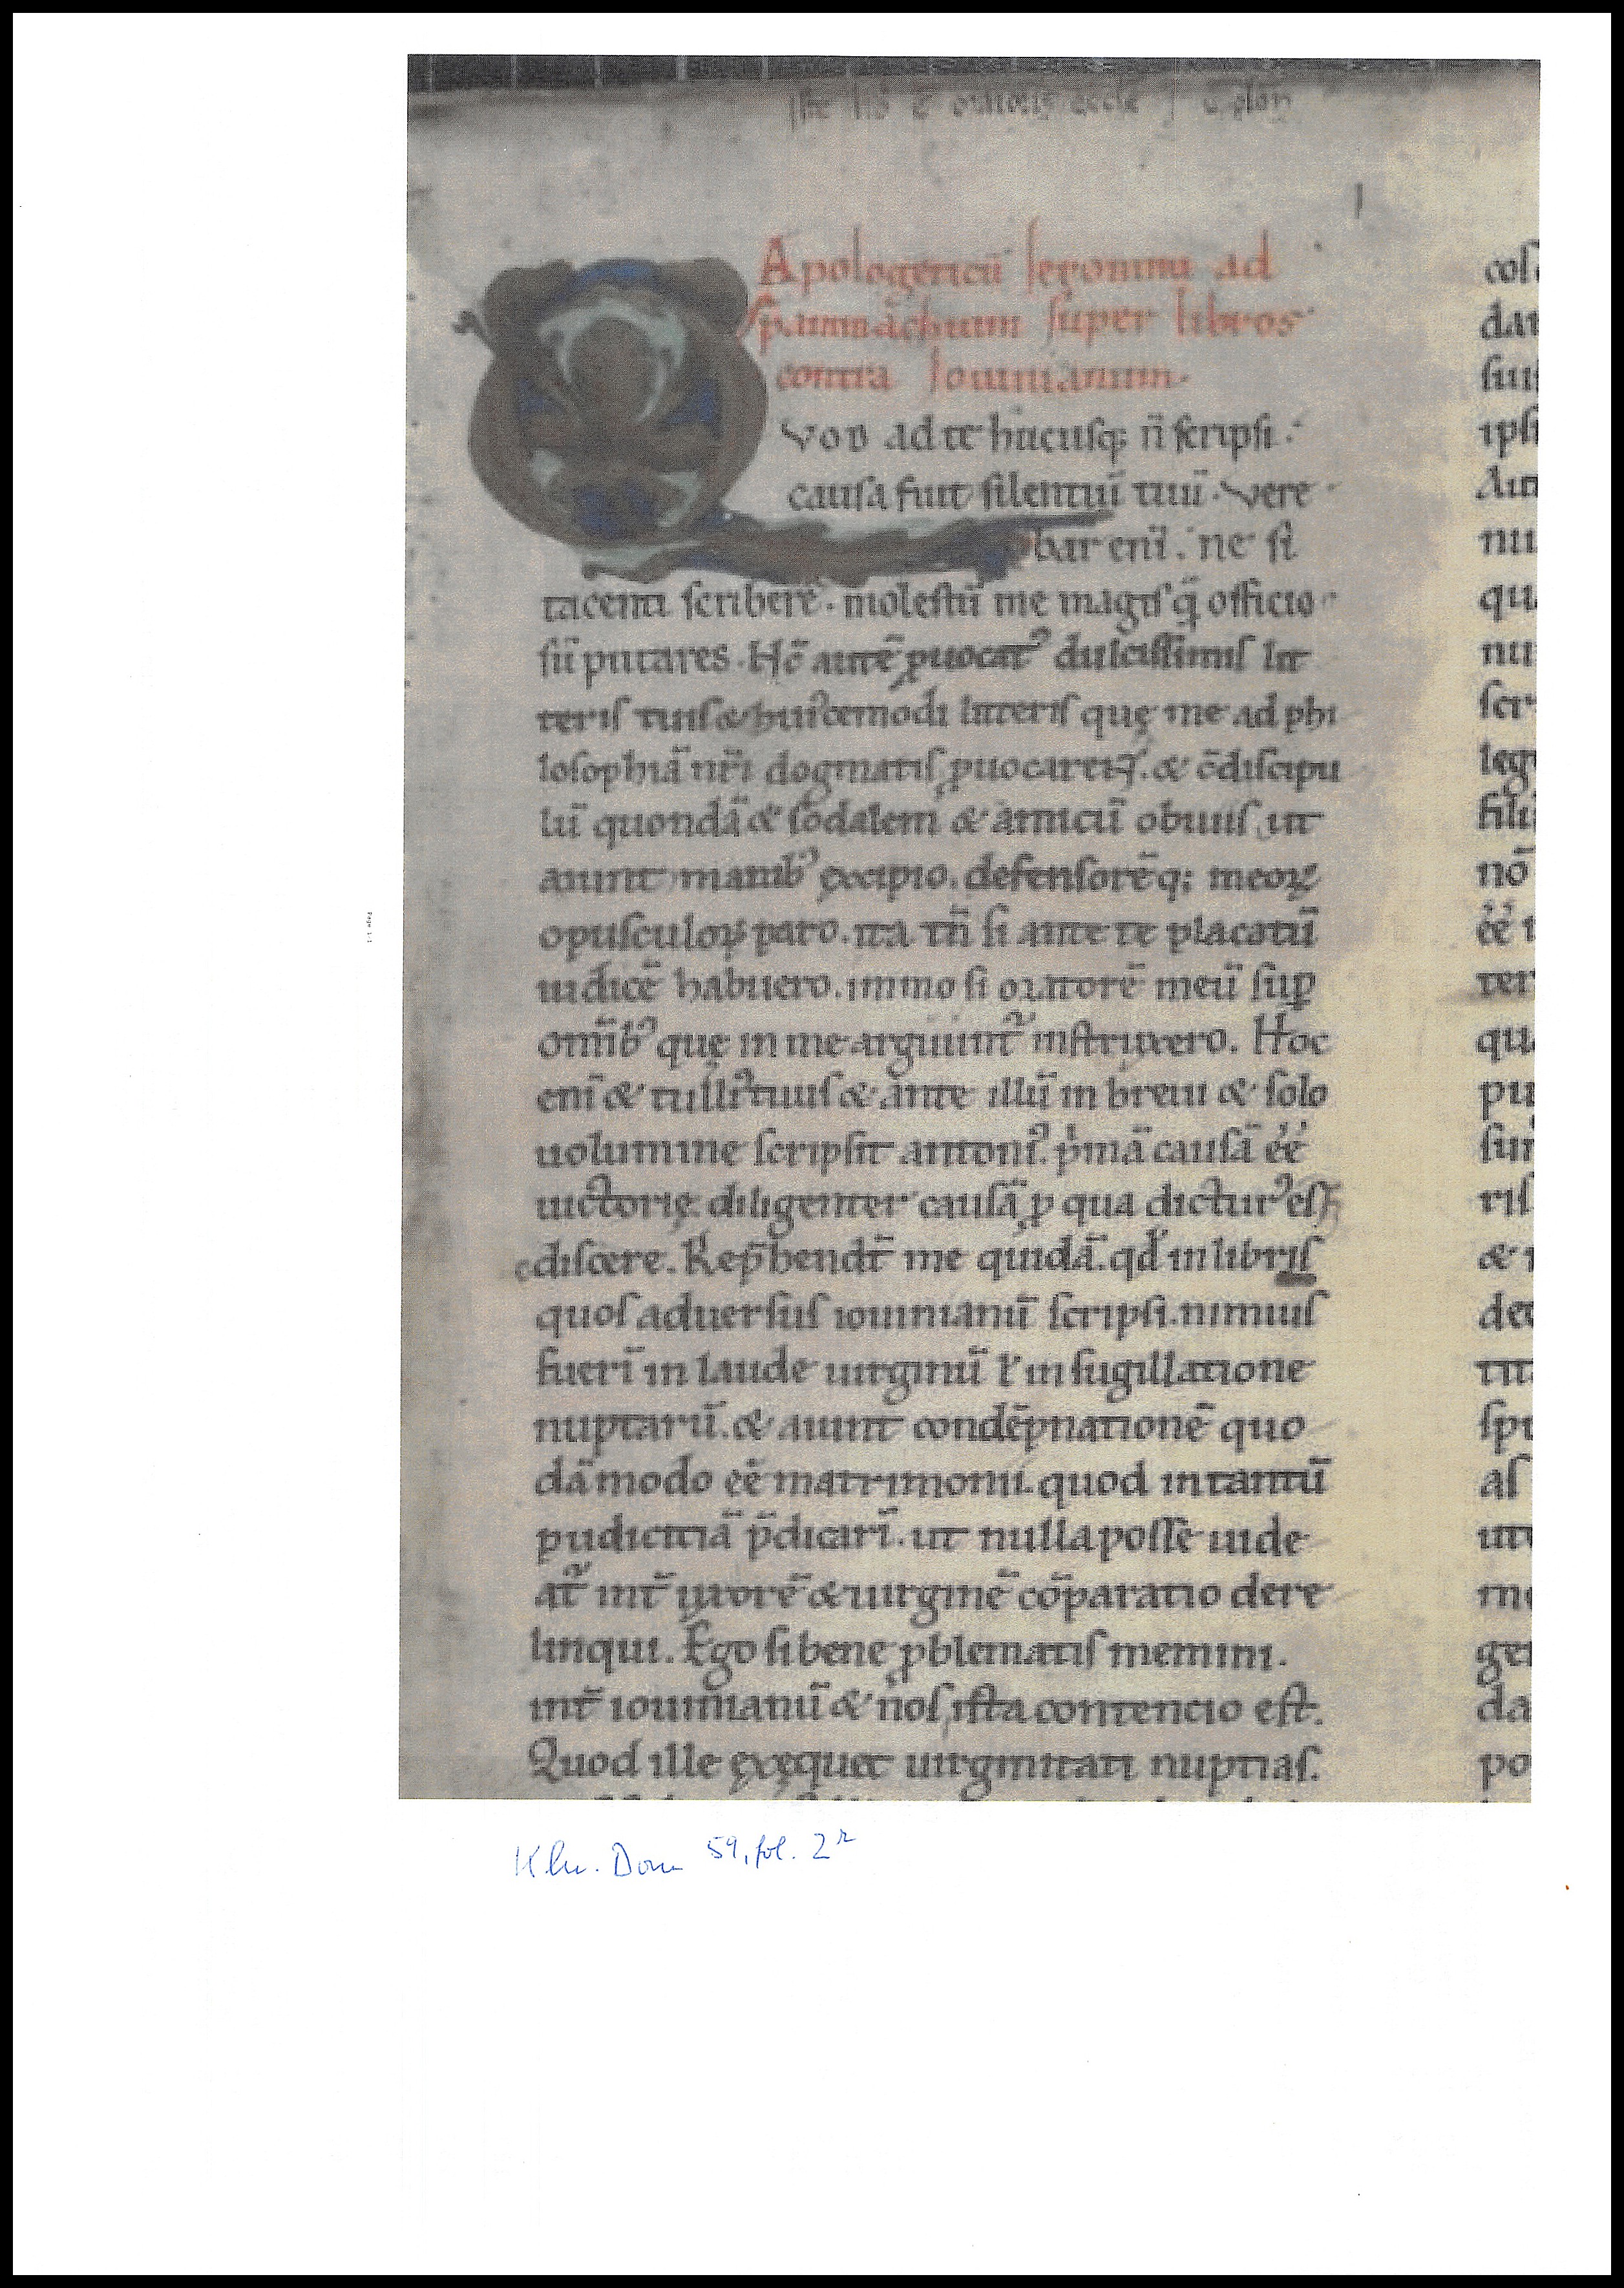 Iste lib̄ ē maioris eccłe ī Colon
1
Apologeticū Ieronimi ad
pammachium super libros
contra Iouinianum.
Quod ad te hucusq; n̄ scripsi.
causa fuit silentiū tuū. Vere
bar eni᷆. ne si
tacenti scribere. molestū me magis q̄ officio
sū putares. Hc̄ autē ꝓuocatꝰ dulcissimis lit
teris tuis & huiꝰcemodi litteris quę me ad phi
losophiā nr̄i dogmatis ꝓuocarent. & c̄discipu
lū quondā & sodalem & amicū obuiis ut
aiunt manibꝰ excipio. defensorēq; meoꝝ
opusculoꝝ paro. ita tn̄ si ante te placatū
iudicē habuero. immo si oratorē meū suꝑ
om̄ibꝰ quę in me arguunt᷑ instruxero. Hoc
enī & tulliꝰ tuus & ante illū in breui & solo
uolumine scripsit antoniꝰ. p̍mā causā eē
uictorię. diligenter causā ꝓ qua dicturꝰ es
ediscere. Rep̄hendt̄ me quidā. qd̓ in libris
quos aduersus iouinianū scripsi. nimius
fueri᷆ in laude uirginū ł in sugillatione
nuptarū. & aiunt condēpnationē quo
dā modo eē matrimonii. quod in tantū
pudicitiā p̄dicari᷆. ut nulla posse uide
at᷑ int̄ uxorē & uirginē cōparatio dere
linqui. Ego si bene ꝓblematis memini.
int̄ iouinianū & nos, ista contencio est.
Quod ille exęquet uirginitati nuptias.
Kln. Dom 59, fol. 2r
Page 1-1